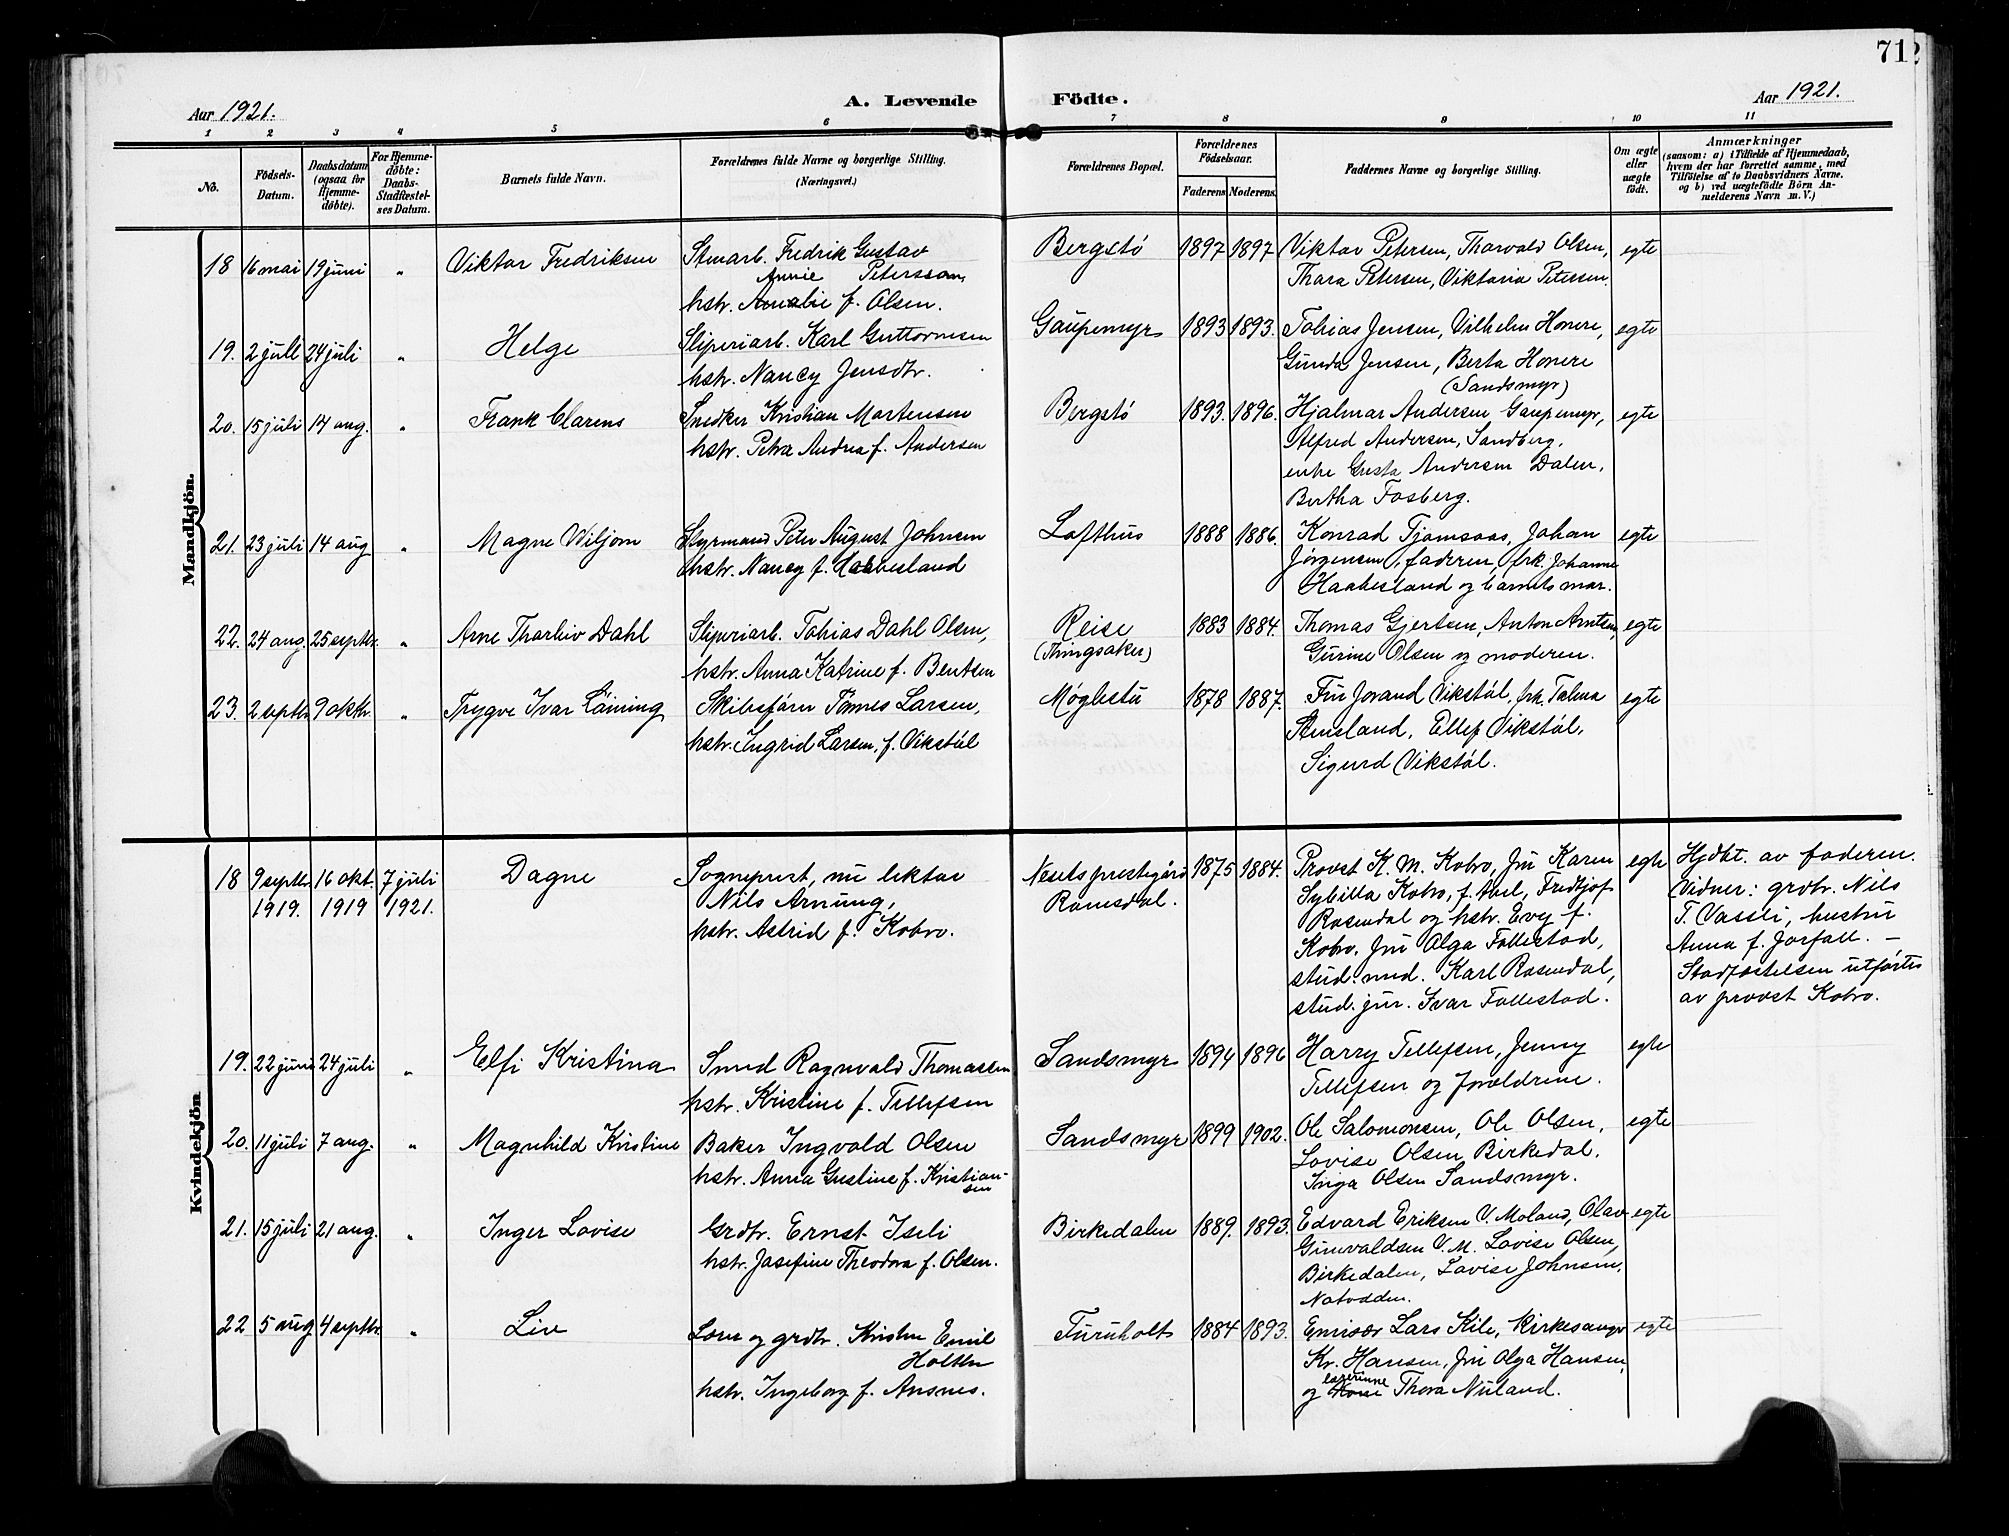 712
Aar 1921.
A. Levende Födte.
Aar 1921.
1 2 3 4 5 6 7 8 9 10 11
No.
Födsels-Datum.
Daabsdatum (ogsaa for Hjemme-döbte).
For Hjemme-döbte: Daabs-Stadfæstel-ses Datum.
Barnets fulde Navn.
Forældrenes fulde Navne og borgerlige Stilling.
(Næringsvei.)
Forældrenes Bopæl.
Forældrenes Födselsaar.
Faderens. Moderens.
Faddernes Navne og borgerlige Stilling.
Om ægte eller uægte födt.
Anmærkninger
(saasom: a) i Tilfælde af Hjemmedaab,
hvem der har forrettet samme, med
Tilföielse af to Daabsvidners Navne.
og b) ved uægtefödte Börn An-
melderens Navn m. V.)
Mandkjön.
18 16 mai 19 juni " Viktor Fredriksen Stenarb. Fredrik Gustav Bergstö 1897 1897 Viktor Petersen, Thorvald Olsen, egte
Annie Petersson,
hstr. Amalie f. Olsen.
Thora Petersen, Viktoria Petersen.
19. 2 juli 24 juli " Helge Sliperiarb. Karl Guttormsen Gaupemyr 1893 1893. Tobias Jensen, Vilhelm Honere, egte
hstr. Nancy Jensdtr.
Gunda Jensen, Berta Honere
(Sandsmyr)
20. 15 juli 14 aug. " Frank Clarens Snedker Kristian Mortensen Bergstö 1893. 1896. Hjalmar Andersen Gaupemyr, egte
hstr. Petra Andrea f. Andersen
Alfred Andersen, Sandberg,
enke Gusta Andersen Dalen,
Bertha Fosberg.
21. 23 juli 14 aug " Magne Wiljom Styrmand Peter August Johnsen Lofthus 1888 1886. Konrad Tjomsaas, Johan egte
hstr. Nancy f. Haabesland
Jörgensen, faderen, frk. Johanne
Haabesland og barnets mor.
22. 24 aug. 25 septbr. " Arne Thorleiv Dahl Sliperiarb. Tobias Dahl Olsen, Reise 1883 1884. Thomas Gjertsen, Anton Arntsen, egte
hstr. Anna Katrine f. Bentsen
(Thingsaker)
Gurine Olsen og moderen.
23. 2 septbr 9 oktbr " Trygve Ivar Löining Skibsförer Tömes Larsen, Möglestu 1878 1887. Fru Jorand Vikstöl, frk. Talma egte
hstr. Ingrid Larsen, f. Vikstöl
Stensland, Ellef Vikstöl,
Sigurd Vikstöl.
Kvindekjön
18 9 septbr. 1919. 16 okt. 1919 7 juli 1921. Dagne Sogneprest, nu lektor Nesets prestegård 1875 1884. Provst K. M. Kobro, fru Karen egte Hjdbt. av faderen.
Nils Arnung,
Romsdal.
Sybilla Kobro, f. Abel, Fredtjof
Vidner: grdbr. Nils
hstr. Astrid f. Kobro.
Rosendal og hstr. Evy f.
T. Vassli, hustru
Kobro. fru Olga Follestad,
Anna f. Jorfall. –
stud. med. Karl Rosendal,
Stadfæstelsen utförtes
stud. jur. Ivar Follestad.
av provst Kobro.
19. 22 juni 24 juli " Elfi Kristina Smed Ragnvald Thomassen Sandsmyr 1894 1896 Harry Tellefsen, Jenny egte
hstr. Kristine f. Tellefsen
Tellefsen og forældrene.
20. 11 juli 7 aug. " Magnhild Kristine Baker Ingvald Olsen Sandsmyr 1899 1902. Ole Salomonsen, Ole Olsen, egte
hstr. Anna Gustine f. Kristian-
sen
Lovise Olsen Birkedal.
Inga Olsen Sandsmyr.
21. 15 juli 21 aug. " Inger Lovise Grdbr. Ernst Iseli Birkedalen 1889. 1893. Edvard Eriksen V. Moland, Olav egte
hstr. Josefine Theodora f. Olsen.
Gunvaldsen V. M. Lovise Olsen,
Birkedalen, Lovise Johnsen,
Notodden.
22 5 aug 4 septbr. " Liv Lærer og grdbr. Kristen Emil Furuholt 1884 1893. Emisær Lars Kile, Kirkesanger egte
Holten
Kr. Hansen, fru Olga Hansen,
hstr. Ingeborg f. Ansnes.
lærerinne
og Thora Nuland.